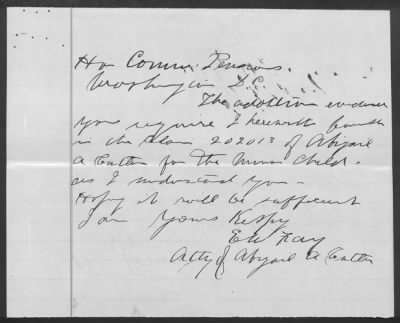 Hon Commr. Pensions.
Washington D.C.
The addition evidence
you require I herewith furnish
in the claim 202013 of Abigail
A Cutter for the minor child.
as I understand you -
Hoping it will be sufficient
I am yours Respy
E W Fay
Atty of Abigail A Cutter